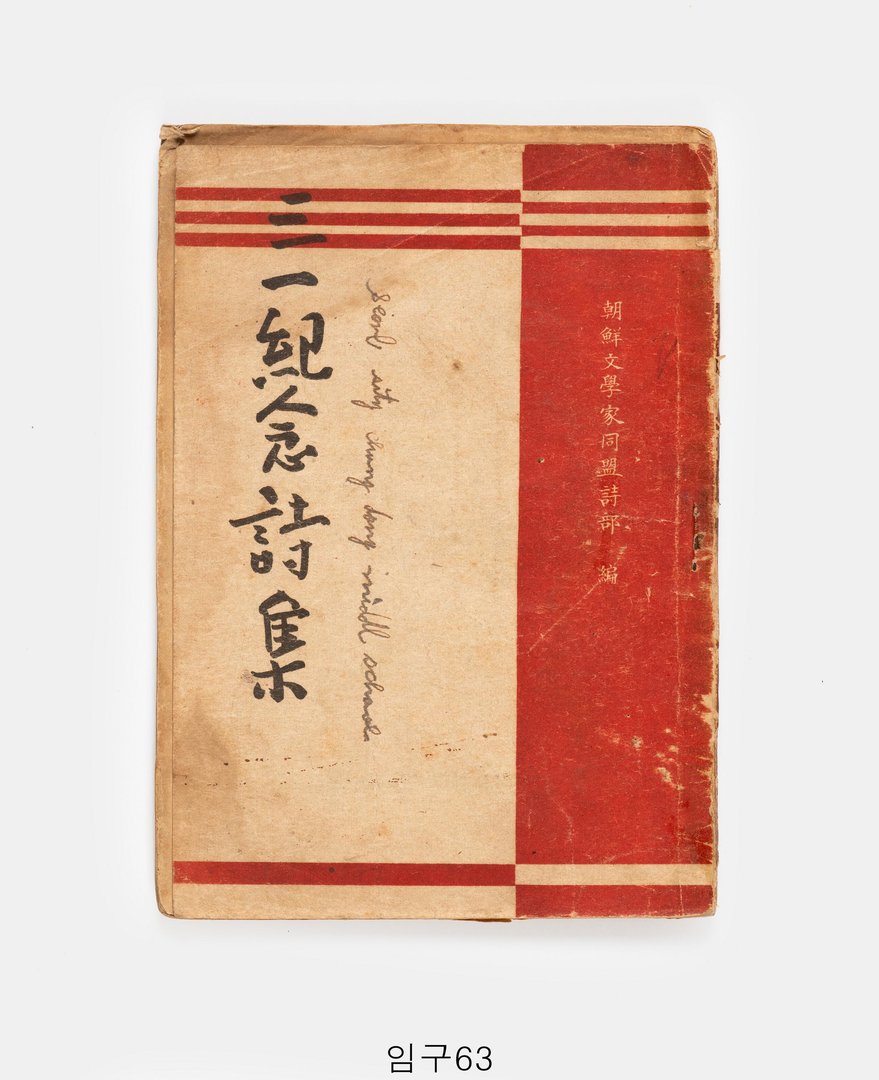 朝鮮文學家同盟詩部 編
seoul city chung dong middl school
三一紀念詩集
임구63